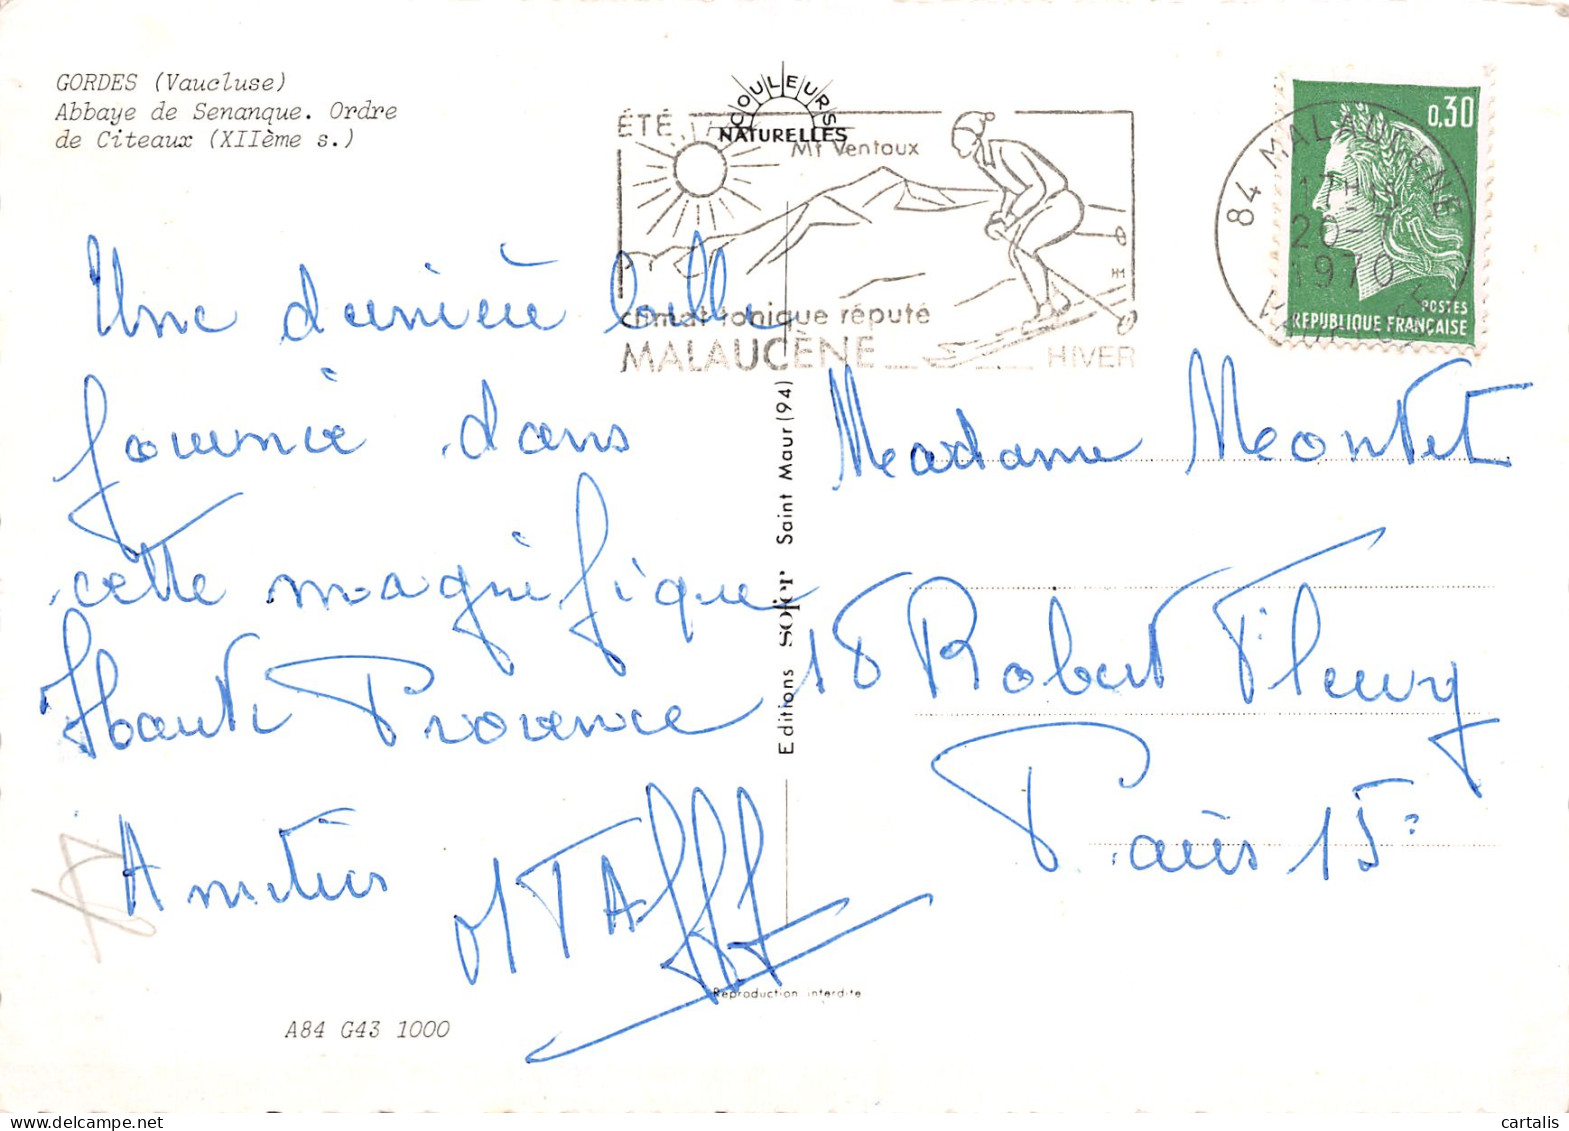 GORDES (Vaucluse)
Abbaye de Senanque. Ordre
de Citeaux (XIIème s.)
COULEURS
NATURELLES
ÉTÉ
Mt Ventoux
HM
climat tonique réputé
MALAUCÈNE
HIVER
84 MALAUCENE
17H15
20-7
1970
VAUCLUSE
0,30
POSTES
REPUBLIQUE FRANÇAISE
Une dernière belle
journée dans
cette magnifique
Haute Provence
Amitiés
MTAFF
Madame Montet
18 Robert Fleury
Paris 15e
Editions SOJER Saint Maur (94)
Reproduction interdite
A84 G43 1000
cartalis